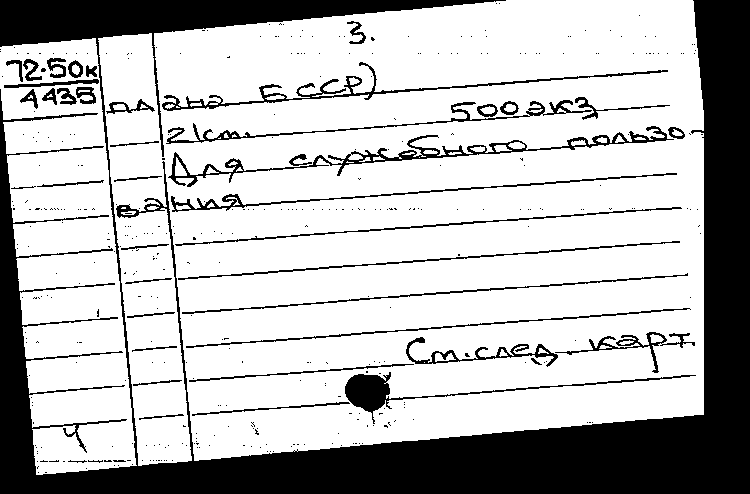 3.
72-50к
4435
плана БССР)
21см. 500экз
Для служебного пользо-
вания
См.след. карт.
Ч